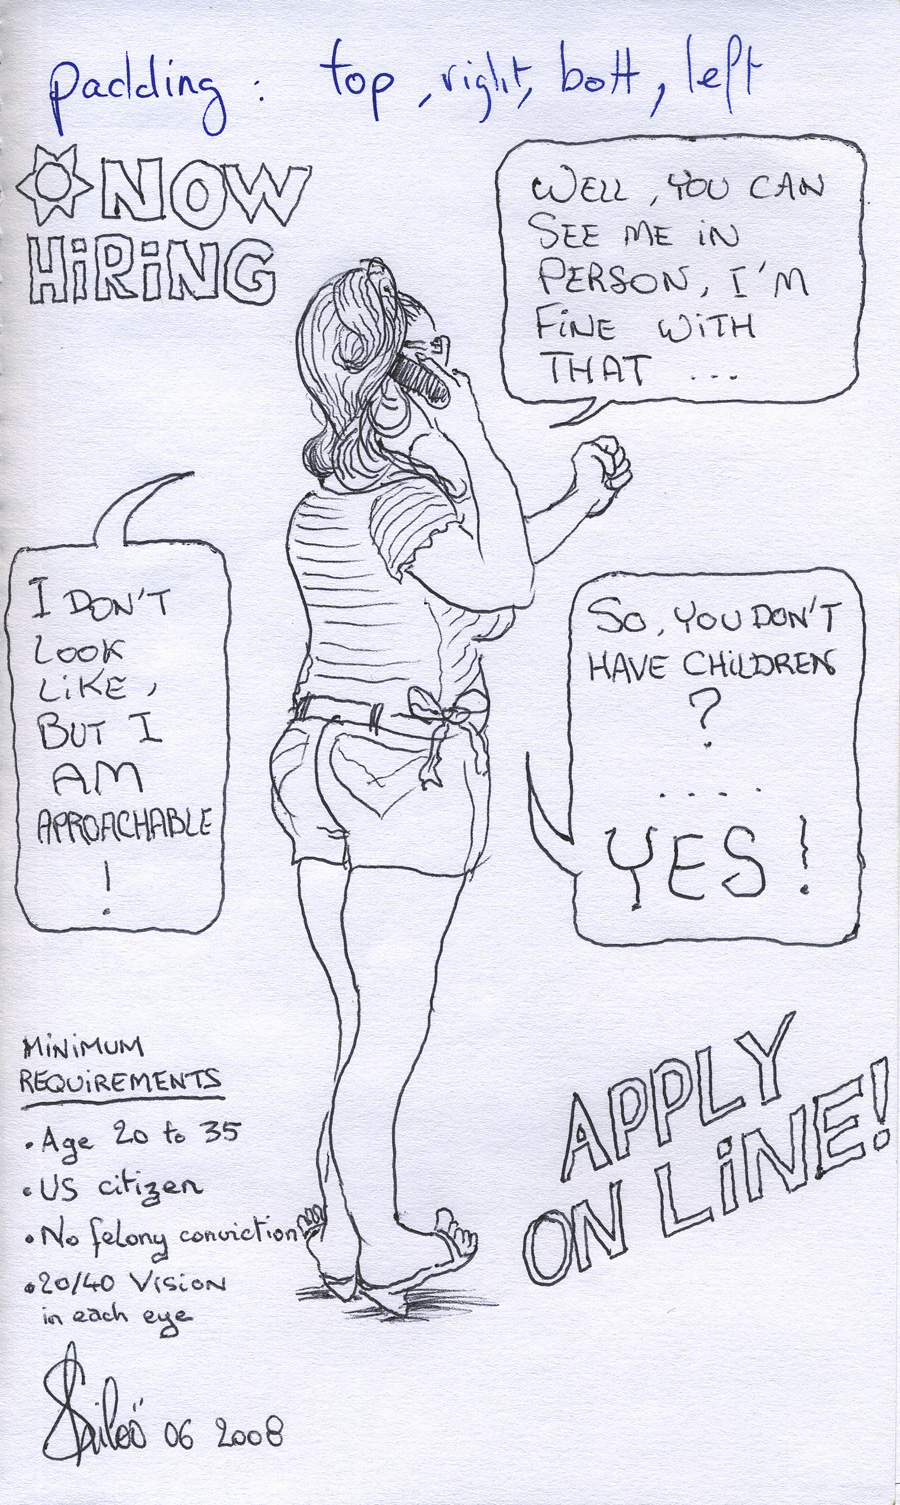 padding : top, right, bott, left
NOW
HiRiNG
WELL, YOU CAN
SEE ME iN
PERSON, I'M
FiNE WiTH
THAT ...
I DON'T
LOOK
LiKE,
BUT I
AM
APROACHABLE
!
SO, YOU DON'T
HAVE CHiLDREN
?
. . . .
YES!
MiNiMUM
REQUiREMENTS
• Age 20 to 35
• US citizen
• No felony conviction
• 20/40 Vision
in each eye
APPLY
ON LiNE!
06 2008